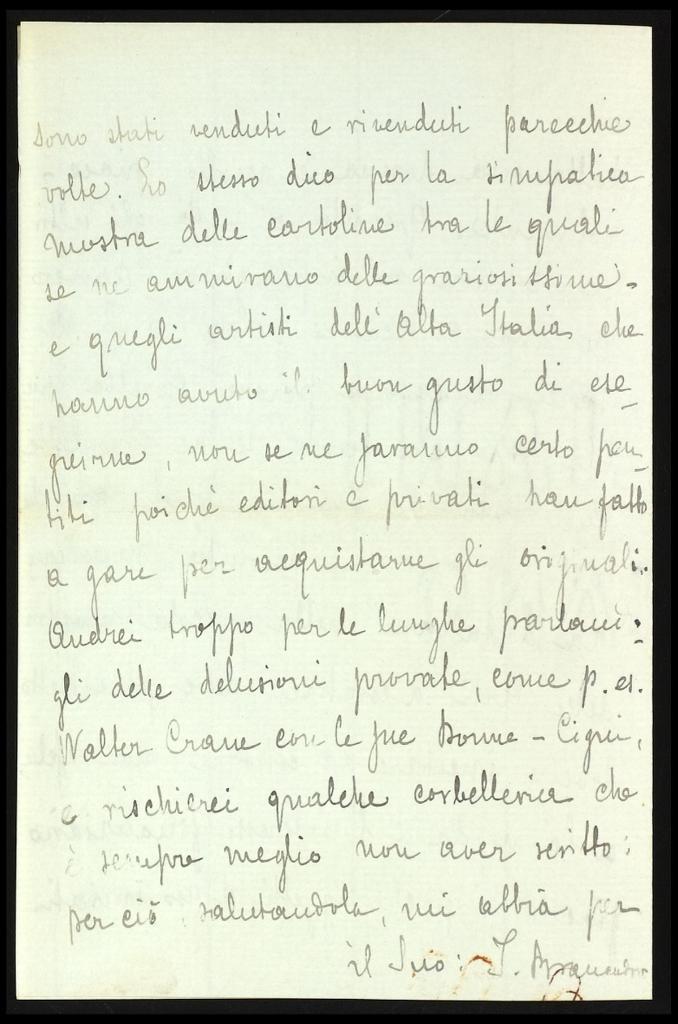 sono stati venduti e rivenduti parecchie
volte. Lo stesso dico per la simpatica
mostra delle cartoline tra le quali
se ne ammirano delle graziosissime -
e quegli artisti dell' Alta Italia che
hanno avuto il buon gusto di ese-
guirne, non se ne faranno, certo pen-
titi poichè editori e privati han fatto
a gare per acquistarne gli originali.
Andrei troppo per le lunghe parlan-
gli delle delusioni provate, come p. es.
Walter Crane con le sue Donne - Cigni,
e rischierei qualche corbelleria che
è sempre meglio non aver scritto:
per ciò, salutandola, mi abbia per
il Suo: